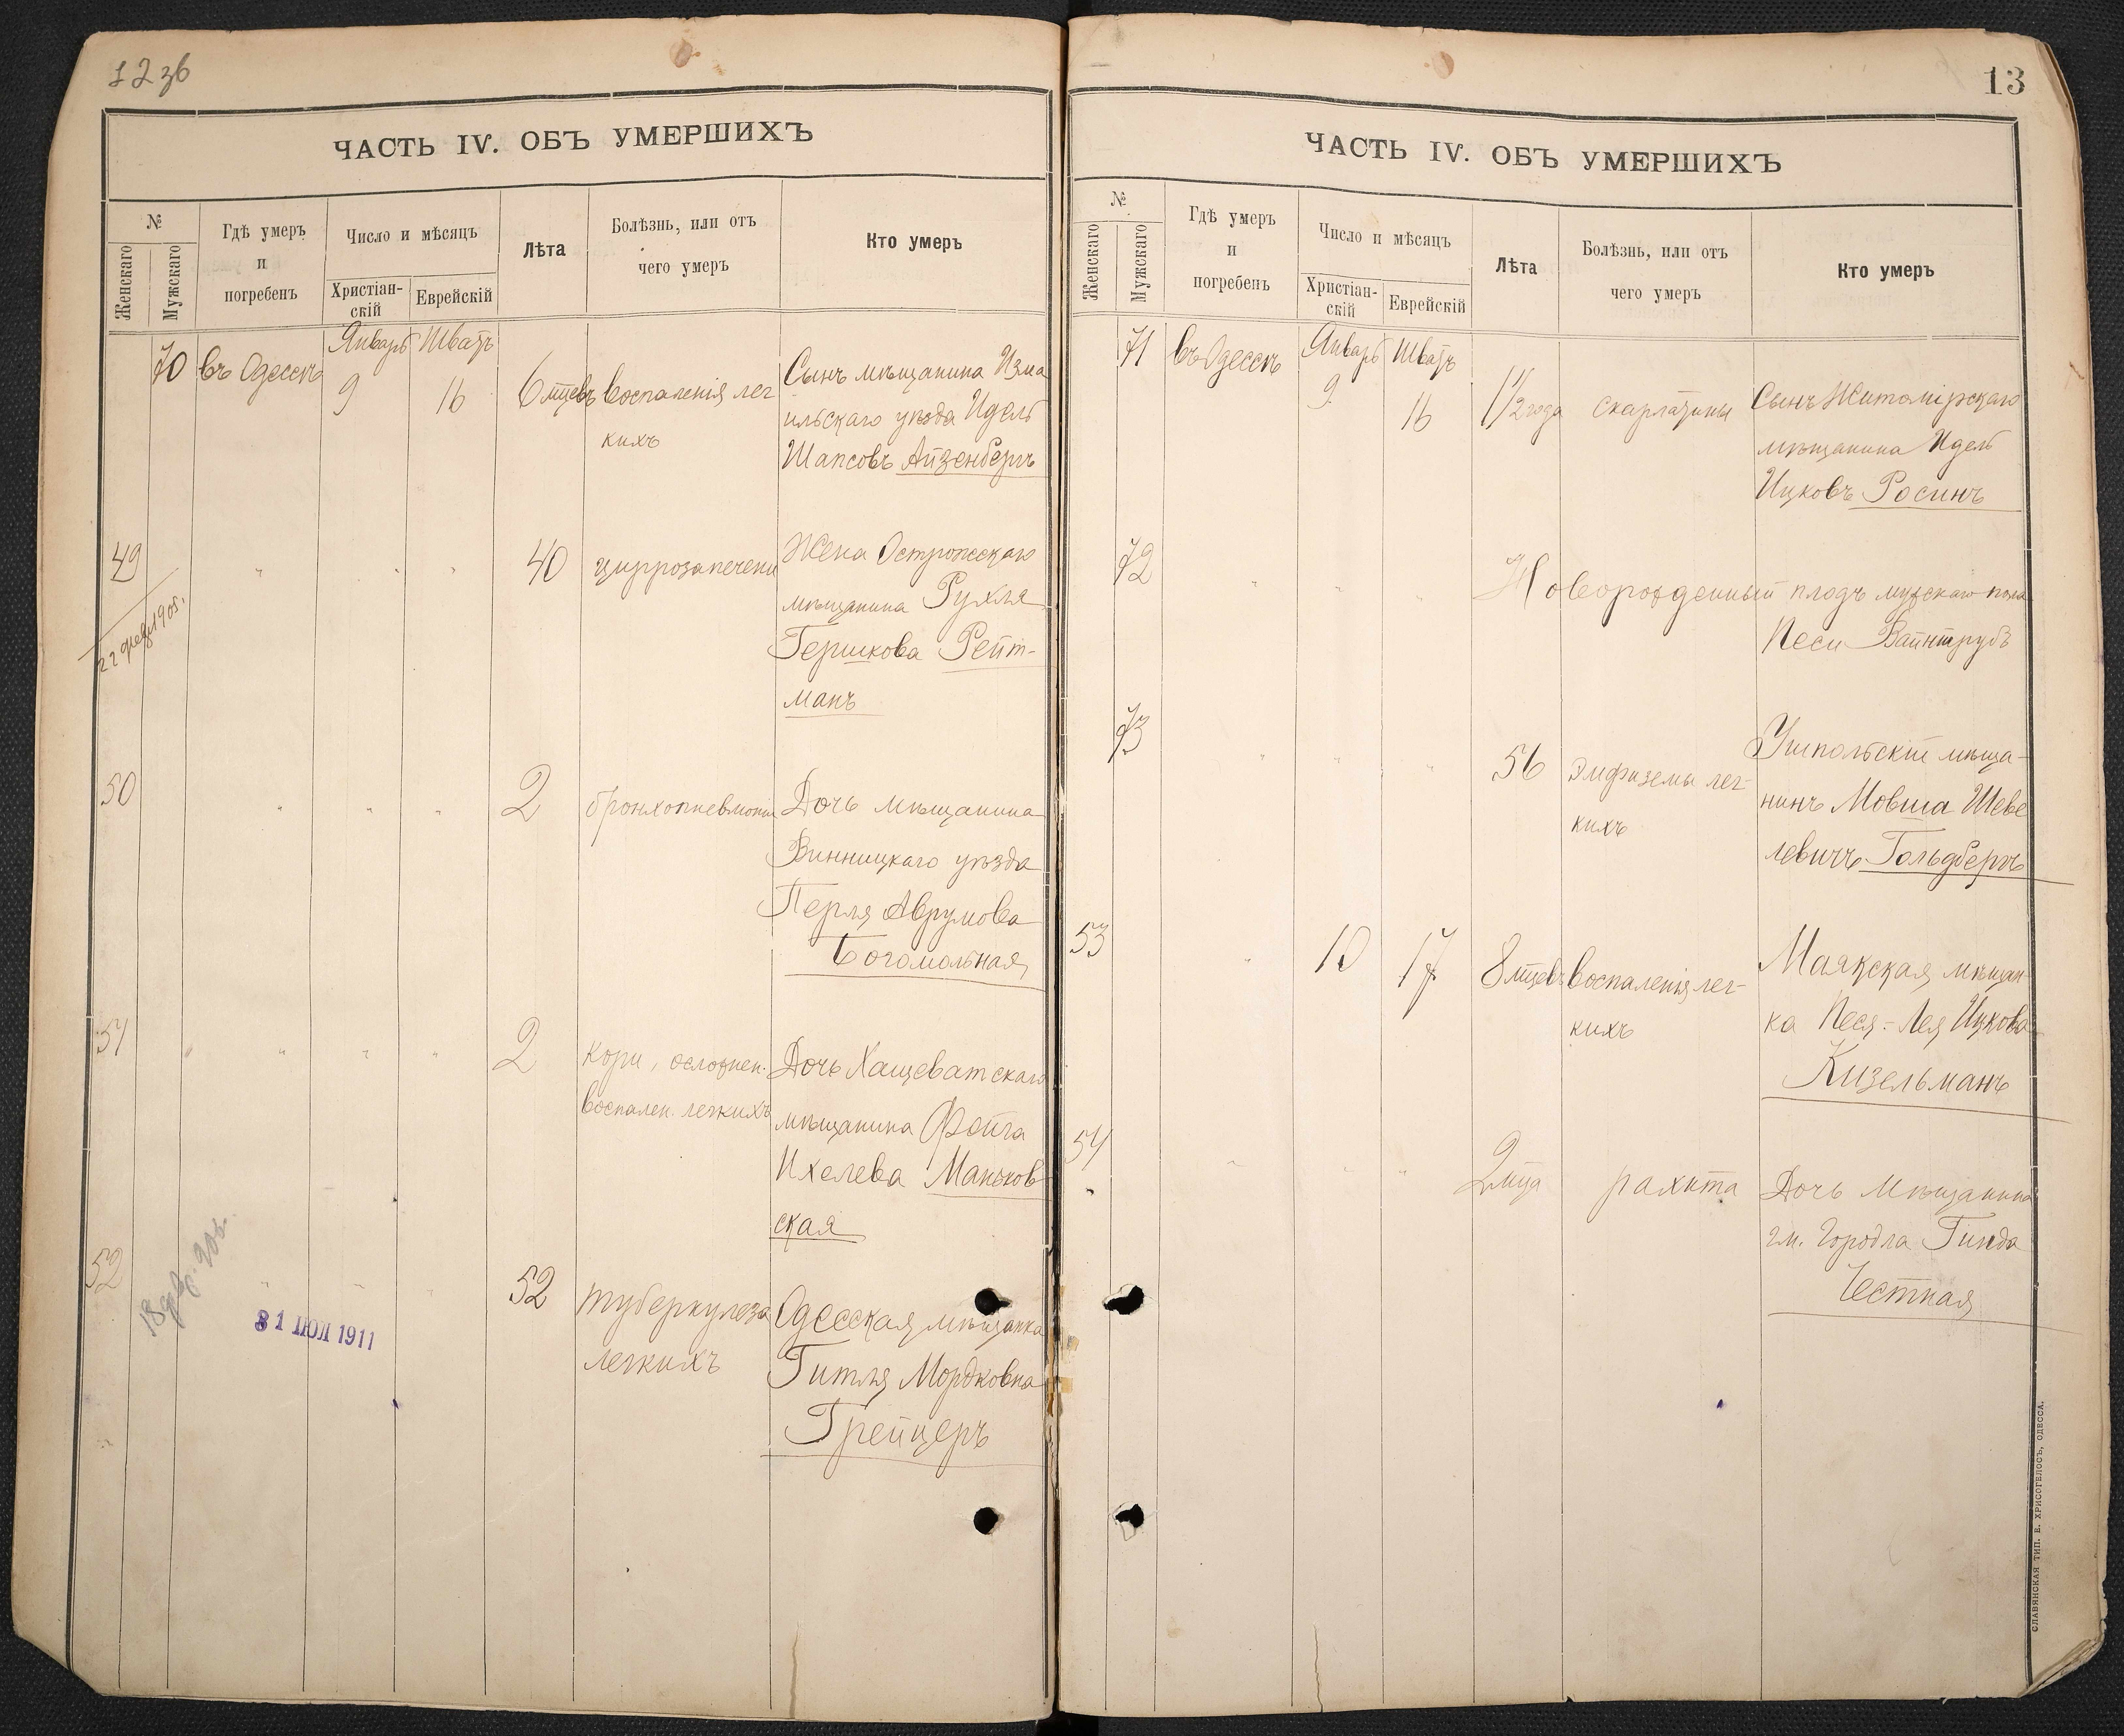 12 зв
ЧАСТЬ IV. ОБЪ УМЕРШИХЪ
№
Женскаго
Мужскаго
Гдѣ умеръ
и
погребенъ
Число и мѣсяцъ
Христіан-
скій
Еврейскій
Лѣта
Болѣзнь, или отъ
чего умеръ
Кто умеръ
70 въ Одессѣ Январь 9 Шватъ 16 6 мцевъ Воспаленія лег
кихъ
Сынъ мѣщанина Изма
ильскаго уѣзда Идель
Шапсовъ Айзенбергъ
49 " " " 40 цирроза печени
22 февр 1905г.
Жена Острожскаго
мѣщанина Рухля
Гершкова Рейт-
манъ
50 " " " 2 бронхопневмоніи
Дочь мѣщанина
Винницкаго уѣзда
Перля Аврумова
Богомольная
51 " " " " 2 Кори, осложнен.
воспален. легкихъ
Дочь Хащеватскаго
мѣщанина Фейга
Ихелева Маньков
ская
52 " " " 52 туберкулеза
легкихъ
31 ІЮЛ 1911
Одесская мѣщанка
Гитля Мордковна
Грейцеръ
13
ЧАСТЬ IV. ОБЪ УМЕРШИХЪ
№
Женскаго
Мужскаго
Гдѣ умеръ
и
погребенъ
Число и мѣсяцъ
Христіан-
скій
Еврейскій
Лѣта
Болѣзнь, или отъ
чего умеръ
Кто умеръ
71 въ Одессѣ Январь 9 Шватъ 16 1 1/2 года Скарлатины
Сынъ Житомірскаго
мѣщанина Идель
Ицковъ Росинъ
72 " " " Новорожденный плодъ мужскаго пола
Песи Вайнтрубъ
73 " " " 56 Эмфиземы лег-
кихъ
Ушпольскій мѣща-
нинъ Мовша Шеве
левичъ Гольдбергъ
53 " 10 17 8 мцевъ Воспаленія лег-
кихъ
Маякская мѣщан-
ка Песя-Лея Ицкова
Кизельманъ
54 " " " 2 мца рахита
Дочь мѣщанина
гм. Городла Гинда
Честная
СЛАВЯНСКАЯ ТИП. Е. ХРИСОГЕЛОСЪ, ОДЕССА.